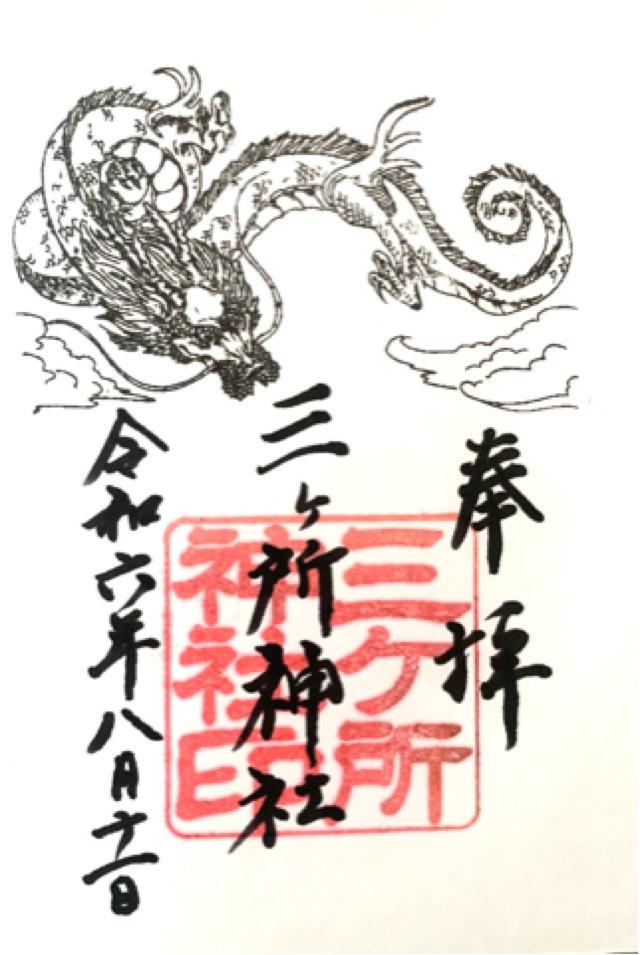 奉拝
三ヶ所神社
三ヶ所
神社印
令和六年八月十一日